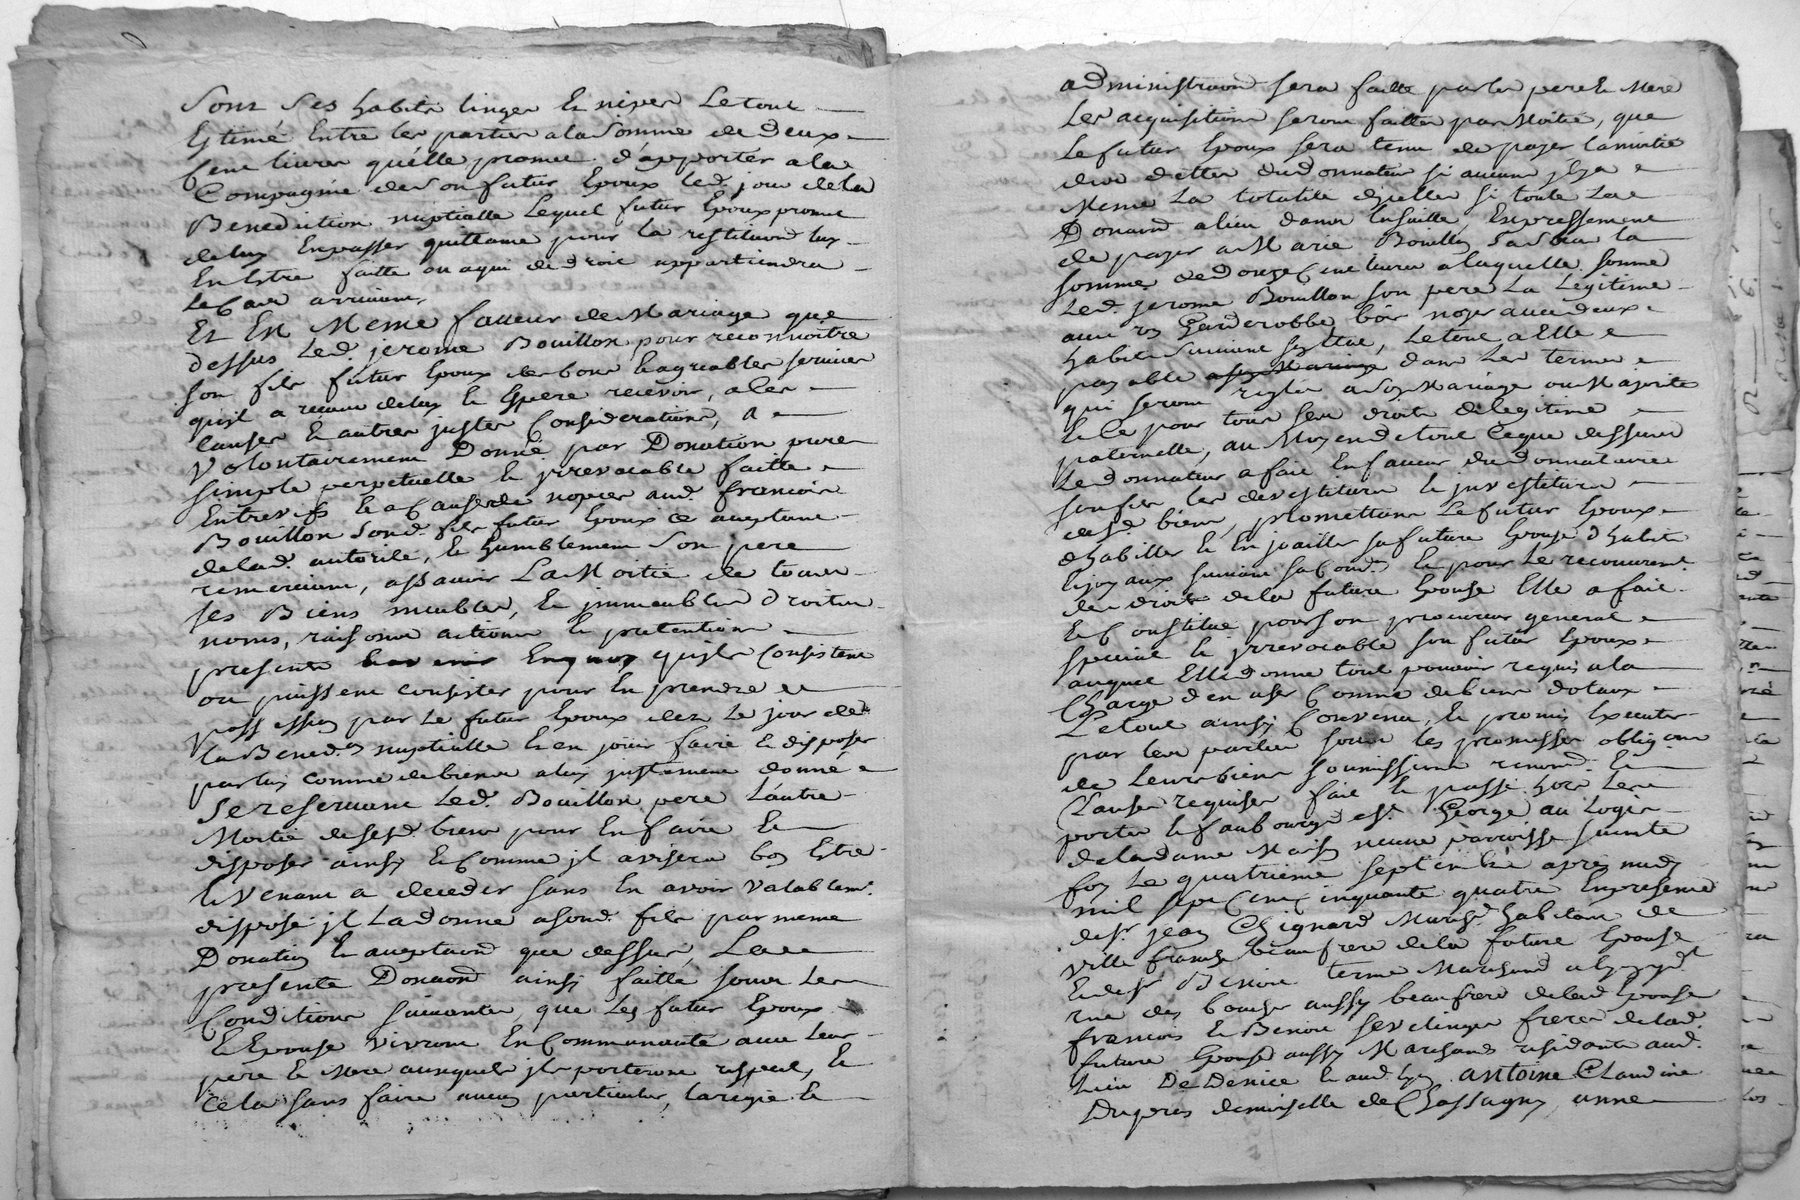 Sont Ses habits linges Et nipes Le tout
Estimé Entre les parties a la Somme de deux
Cent livres qu'élle promet d'apporter a la
Compagnie de Son futur Epoux led. jour de la
Benediction nuptialle Lequel futur Epoux promet
de luy En passer quittance pour la restituaon luy
En Estre faitte ou a qui de droit appartiendra
le Cas arrivant,
Et En Meme faveur de Mariage que
dessus Led. jerome Bouillon pour reconnoitre
son fils futur Epoux des bons & agreables services
qu'il a receu de luy & Espere recevoir, a les
causes & autres justes Considerations, a
Volontairement Donné par Donation pure
simple perpetuelle & irrevocable faitte
Entre vifs & a Cause de nopces aud. francois
Bouillon Sond. fils futur Epoux ce acceptant
de lad. autorité, & humblement Son pere
remerciant, assavoir La Moitié de tous
ses Biens meubles, & immeubles droits
noms, raisons actions & pretentions
presents En quoy qu'ils Consistent
ou puissent consister pour En prendre
possession par Le futur Epoux dez Le jour de
la Bened.on nuptialle & en jouir faire & disposer
par luy comme de biens a luy justement donné
Se reservant Led. Bouillon pere L'autre
Moitié de sesd. biens pour En faire Et
disposer ainsy & Comme jl avisera bon Estre
& Venant a deceder sans En avoir Valablem.t
disposé jl La donne a sond. fils par meme
Donation & acceptaon que dessus, La
presente Donaon ainsi faitte sous Les
Conditions suivantes, que Les futur Epoux
& Epouse vivront En Communauté avec Leur
pere & Mere auxquels jls porteront respect, &
Cela sans faire aucun particulier, la regie &
administraon sera faitte par les pere & Mere
Les acquisitions seront faittes par Moitié, que
Le futur Epoux sera tenu de payer la moitié
des dettes du donnateur si aucunes jl y a
Meme La totalité d'icelles si toute La
Donaon a lieu dans la suitte, Expressement
de payer a Marie Bouillon Sa Soeur la
somme de Douze Cent livres a laquelle somme
Led. jerome Bouillon son pere La Legitime
avec un Garderobbe bois noyer avec deux
habits Suivant son Etat, Le tout a Elle
payable dans Les termes
qui seront reglés a son Mariage ou Majorité
& Ce pour tous ses droits de legitime
paternelle, au Moyen de tout Ce que dessus
Le donnateur a fait En faveur du donnataire
son fils les devestitures & investitures
desd. biens, promettant Le futur Epoux
d'habiller & En joailler sa future Epouse d'habits
& joyaux suivant sa Cond.on & pour Le recouvrem.t
des droits de la future Epouse Elle a fait
& Constitué pour son procureur general
special & irrevocable son futur Epoux
auquel Elle donne tout pouvoir requis a la
Charge d'en user Comme de biens dotaux
Le tout ainsy Convenu, & promis Executer
par les parties sous les promesses obligaons
de Leurs biens soumissions renonc. &
Clauses requises fait & passé hors Les
portes & faubourg de St. George au Logis
de la dame Maison neuve parroisse Sainte
foy Le quatrieme septembre apres midy
mil sept Cent cinquante quatre En presence
de Sr. jean Chignard March.d habitant de
Ville franche beau frere de la future Epouse
& de Sr. Benoit terme Marchand a Lyon
rue des bouchers aussy beau frere de lad. Epouse
francois & Benoit Sevelinges freres de lad.
future Epouse aussy Marchands residants aud.
Lieu De Denicé & aud. Lyon antoine Claudine
Dupres demoiselle de Chassagny, anne